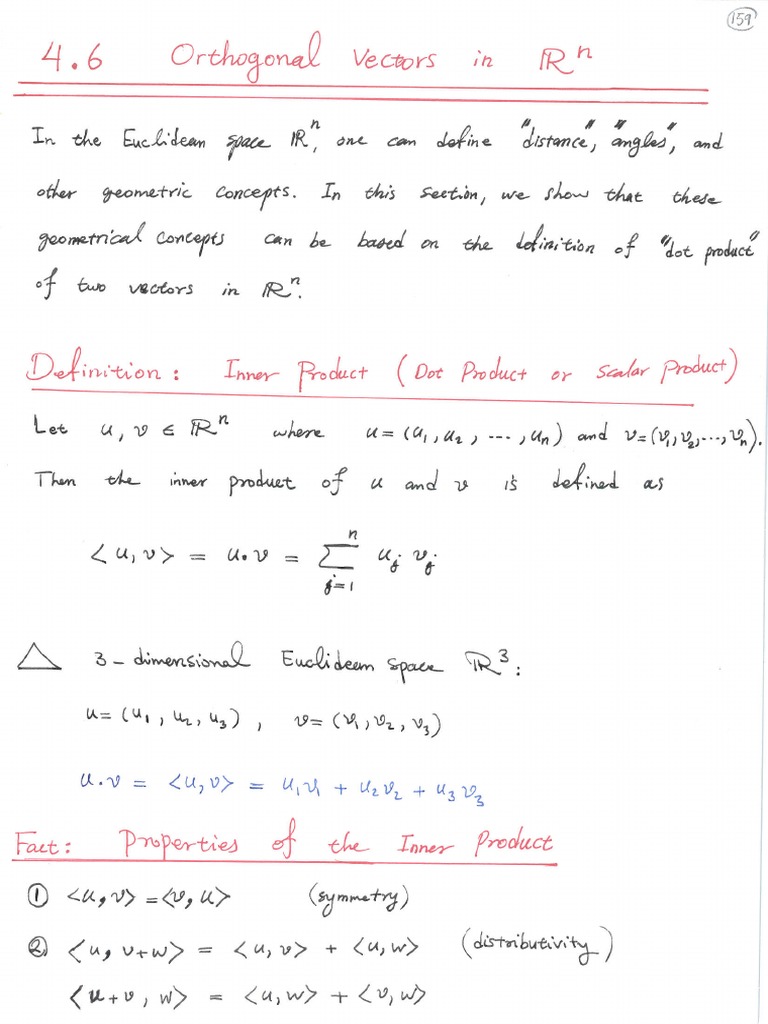 159
4.6 Orthogonal Vectors in ℝⁿ
In the Euclidean space ℝⁿ, one can define "distance", "angles", and
other geometric concepts. In this section, we show that these
geometrical concepts can be based on the definition of "dot product"
of two vectors in ℝⁿ.
Definition: Inner Product (Dot Product or Scalar Product)
Let u, v ∈ ℝⁿ where u = (u₁, u₂, ..., uₙ) and v = (v₁, v₂, ..., vₙ).
Then the inner product of u and v is defined as
<u, v> = u·v = ∑ⁿⱼ₌₁ uⱼ vⱼ
△ 3-dimensional Euclidean space ℝ³:
u = (u₁, u₂, u₃), v = (v₁, v₂, v₃)
u·v = <u, v> = u₁v₁ + u₂v₂ + u₃v₃
Fact: Properties of the Inner Product
① <u, v> = <v, u> (symmetry)
② <u, v+w> = <u, v> + <u, w> (distributivity)
<u+v, w> = <u, w> + <v, w>